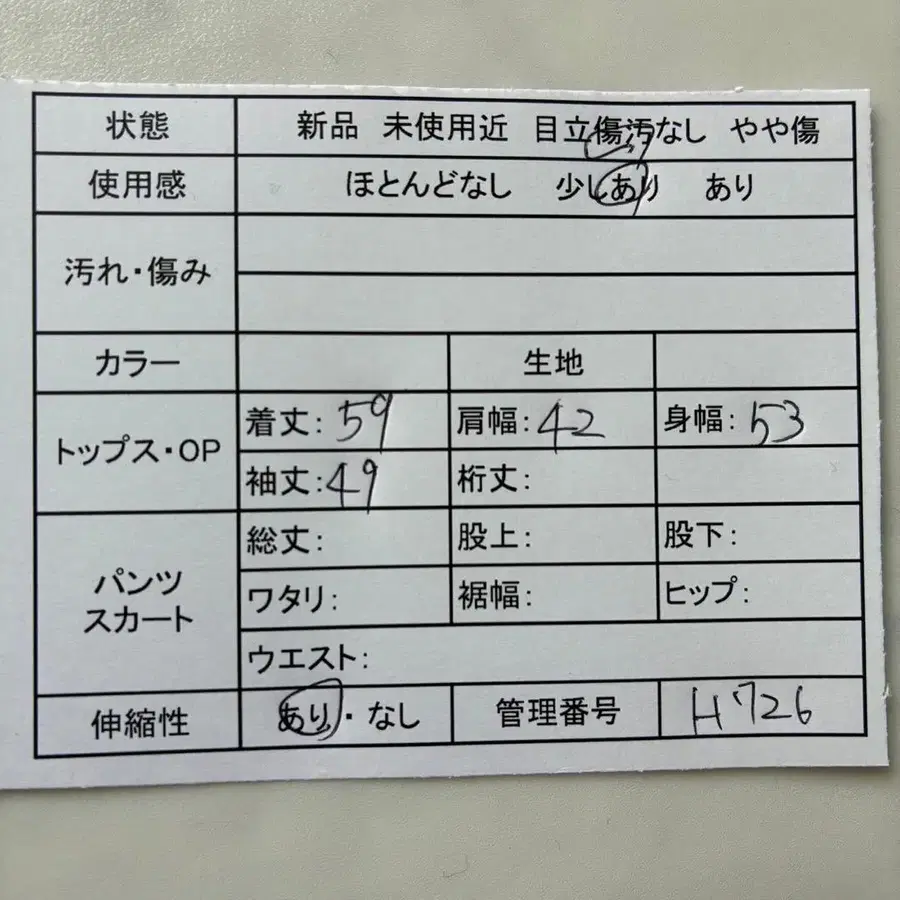 状態 新品 未使用近 目立傷汚なし やや傷
使用感 ほとんどなし 少しあり あり
汚れ・傷み
カラー 生地
トップス・OP 着丈: 59 肩幅: 42 身幅: 53
袖丈: 49 裄丈:
パンツ スカート 総丈: 股上: 股下:
ワタリ: 裾幅: ヒップ:
ウエスト:
伸縮性 あり・なし 管理番号 H726